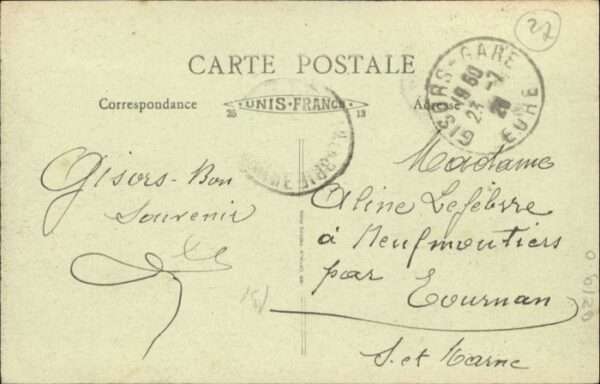 27
CARTE POSTALE
Correspondance
UNIS-FRANCE
25
13
GISORS-GARE
18 60
23 -2
28
EURE
Gisors - Bon
Souvenir
Madame
Aline Lefebvre
à Neufmoutiers
par
Tournan
S. et Marne